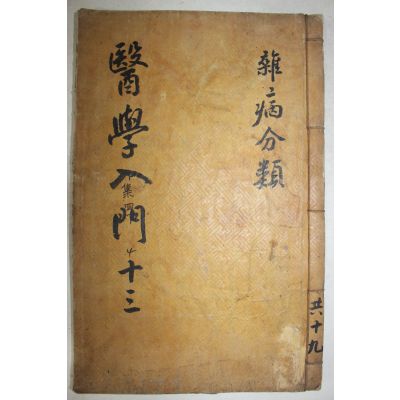 雜病分類
醫學入門 十三
共十九